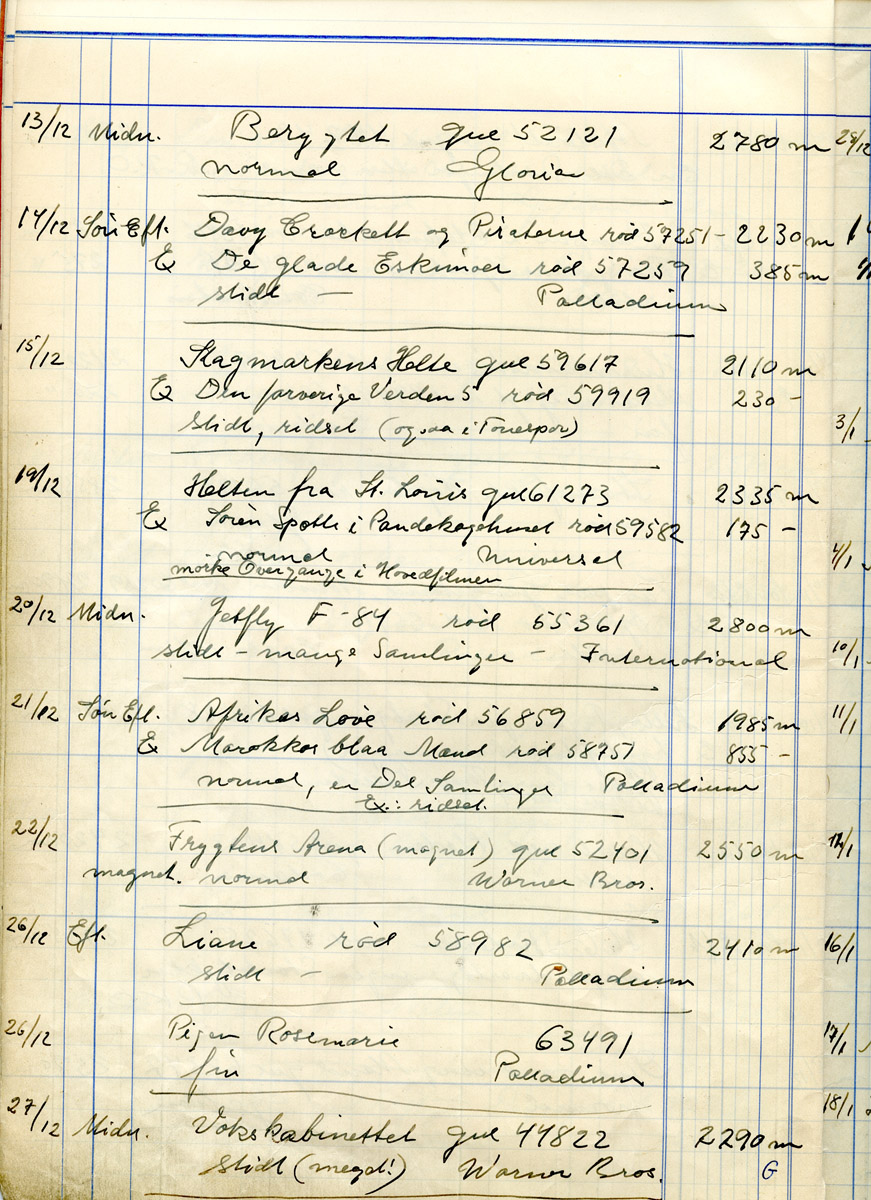 13/12 Midn. Berygtet gul 52121 2780 m 28/12
normal Gloria
14/12 Søn Eft. Davy Crockett og Piraterne rød 57251 - 2230 m
Ex De glade Eskimoer rød 57259 385 m
slidt — Palladium
15/12 Slagmarkens Helte gul 59617 2110 m
Ex Den farverige Verden 5 rød 59919 230 -
slidt, ridset (ogsaa i Tonespor) 3/1
19/12 Helten fra St. Louis gul 61273 2335 m
Ex Søren Spætte i Pandekagehuset rød 59582 175 -
normal Universal 4/1
mørke Overgange i Hovedfilmen
20/12 Midn. Jetfly F-84 rød 55361 2800 m
slidt - mange Samlinger - International 10/1
21/12 Søn Eft. Afrikas Løve rød 56859 1985 m 11/1
Ex Marokkos blaa Mænd rød 58751 855 -
normal, en Del Samlinger Palladium
Ex: ridset.
22/12 Frygtens Arena (magnet) gul 52401 2550 m
magnet. normal Warner Bros.
26/12 Eft. Liane rød 58982 2410 m 16/1
slidt — Palladium
26/12 Pigen Rosemarie 63491 17/1
fin Palladium
27/12 Midn. Vokskabinettet gul 44822 2290 m 18/1
slidt (meget!) Warner Bros. G